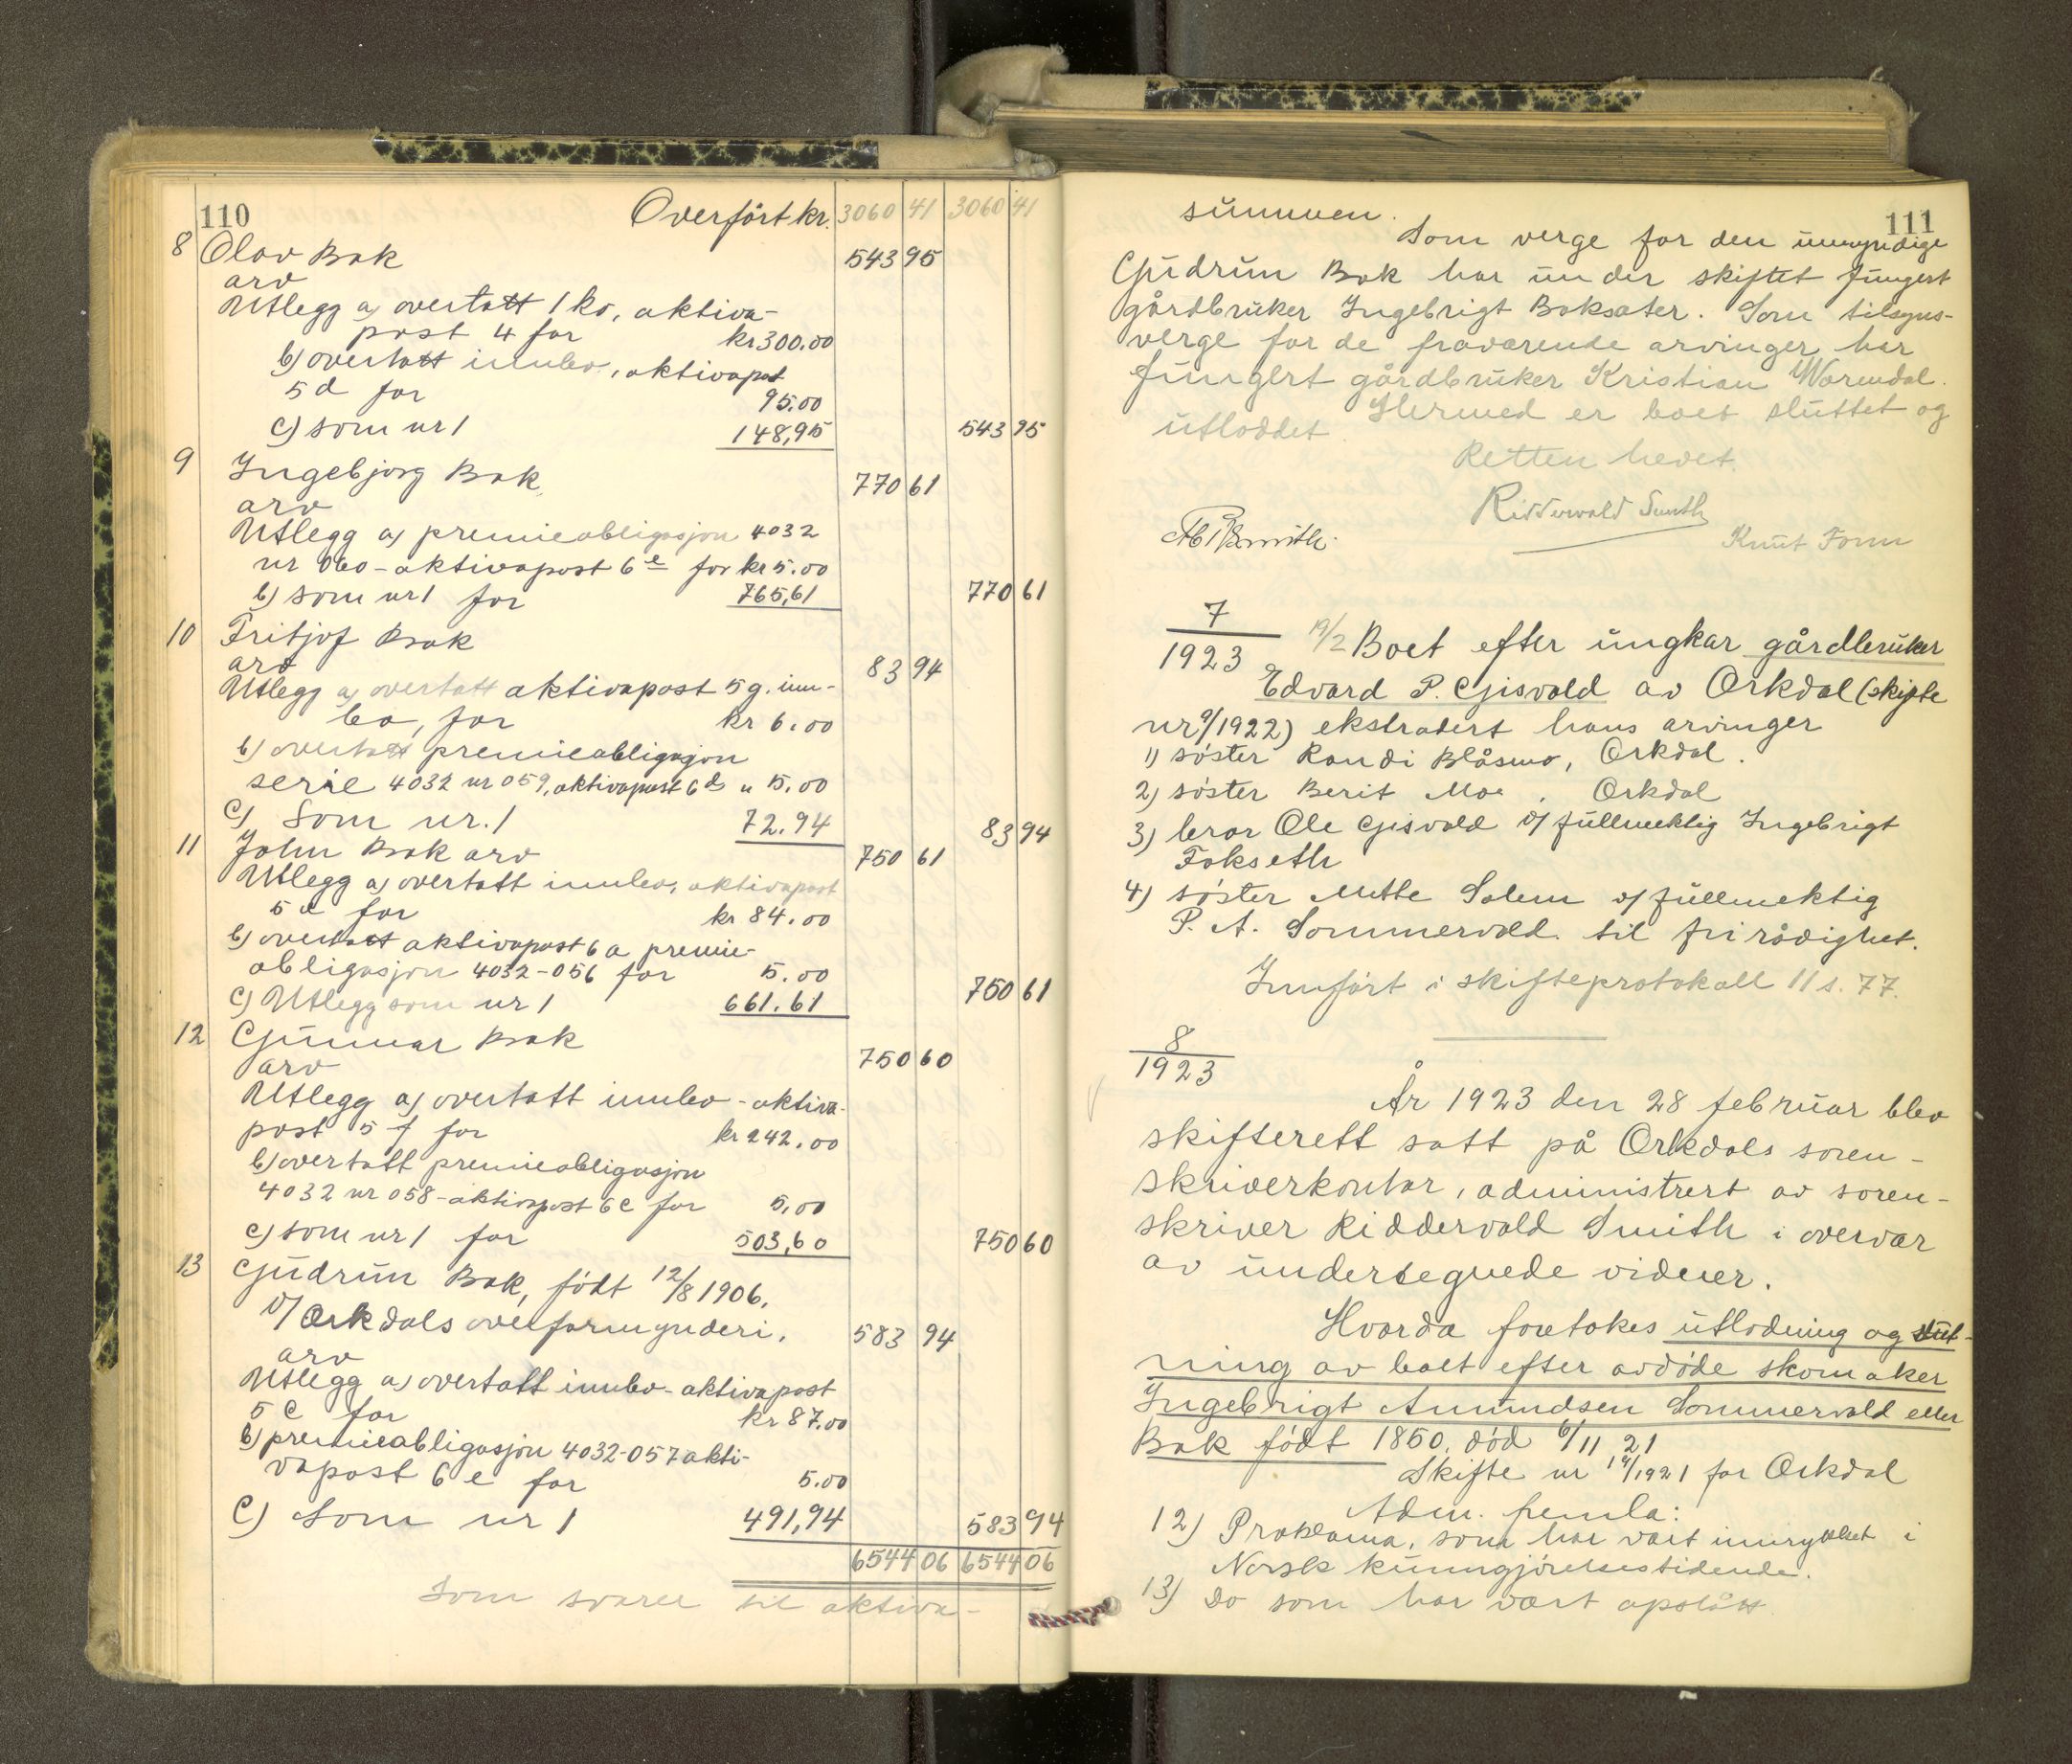 110 Overført kr. 3060 41 3060 41
8 Olav Bak 543 95
arv
Utlegg a) overtatt 1 ko, aktiva-
post 4 for kr 300.00
b) overtatt innbo, aktivapost
5 d for 95.00
c) som nr 1 148,95 543 95
9 Ingebjørg Bak 770 61
arv
Utlegg a) premieobligasjon 4032
nr 060 - aktivapost 6 e for kr 5.00
b) som nr 1 for 765,61 770 61
10 Fritjof Bak
arv 83 94
Utlegg a) overtatt aktivapost 5 g. inn-
bo, for kr 6.00
b) overtatt premieobligasjon
serie 4032 nr 059, aktivapost 6 d " 5.00
c) Som nr. 1 72.94 83 94
11 John Bak arv 750 61
Utlegg a) overtatt innbo, aktivapost
5 e for kr 84.00
b) overtatt aktivapost 6 a premie-
obligasjon 4032-056 for 5.00
c) Utlegg som nr 1 661.61 750 61
12 Gunnar Bak
arv 750 60
Utlegg a) overtatt innbo - aktiva-
post 5 f for kr 242.00
b) overtatt premieobligasjon
4032 nr 058 - aktivapost 6 c for 5,00
c) som nr 1 for 503,60 750 60
13 Gudrun Bak, født 12/8 1906.
v/ Orkdals overformynderi. 583 94
arv
Utlegg a) overtatt innbo - aktivapost
5 c for kr 87.00
b) premieobligasjon 4032-057 akti-
vapost 6 e for 5.00
c) Som nr 1 491,94 583 94
6544 06 6544 06
som svarer til aktiva-
111
summen.
Som verge for den umyndige
Gudrun Bak har under skiftet fungert
gårdbruker Ingebrigt Baksæter. Som tilsyns-
verge for de fraværende arvinger har
fungert gårdbruker Kristian Warendal.
Hermed er boet sluttet og
utloddet
Retten hevet.
Riddervold Smith
Smith. Knut Form
7
1923 19/2 Boet efter ungkar gårdbruker
Edvard P. Gisvold av Orkdal (skifte
nr 9/1922) ekstradert hans arvinger
1) søster Randi Blåsmo, Orkdal.
2) søster Berit Moe, Orkdal
3) bror Ole Gisvold v/ fullmektig Ingebrigt
Fokseth
4) søster Mette Solem v/ fullmektig
P. A. Sommervold til fri rådighet.
Innført i skifteprotokoll 11 s. 77.
8
1923
År 1923 den 28 februar blev
skifterett satt på Orkdals soren-
skriverkontor, administrert av soren-
skriver Riddervold Smith i overvær
av undertegnede vidner.
Hvorda foretokes utlodning og slut-
ning av boet efter avdøde skomaker
Ingebrigt Amundsen Sommervold eller
Bak født 1850. død 6/11 21
Skifte nr 19/1921 for Orkdal
Adm. fremla:
12) Proklama, som har vært innrykket i
Norsk kunngjørelsestidende.
13) Do som har vært opslått